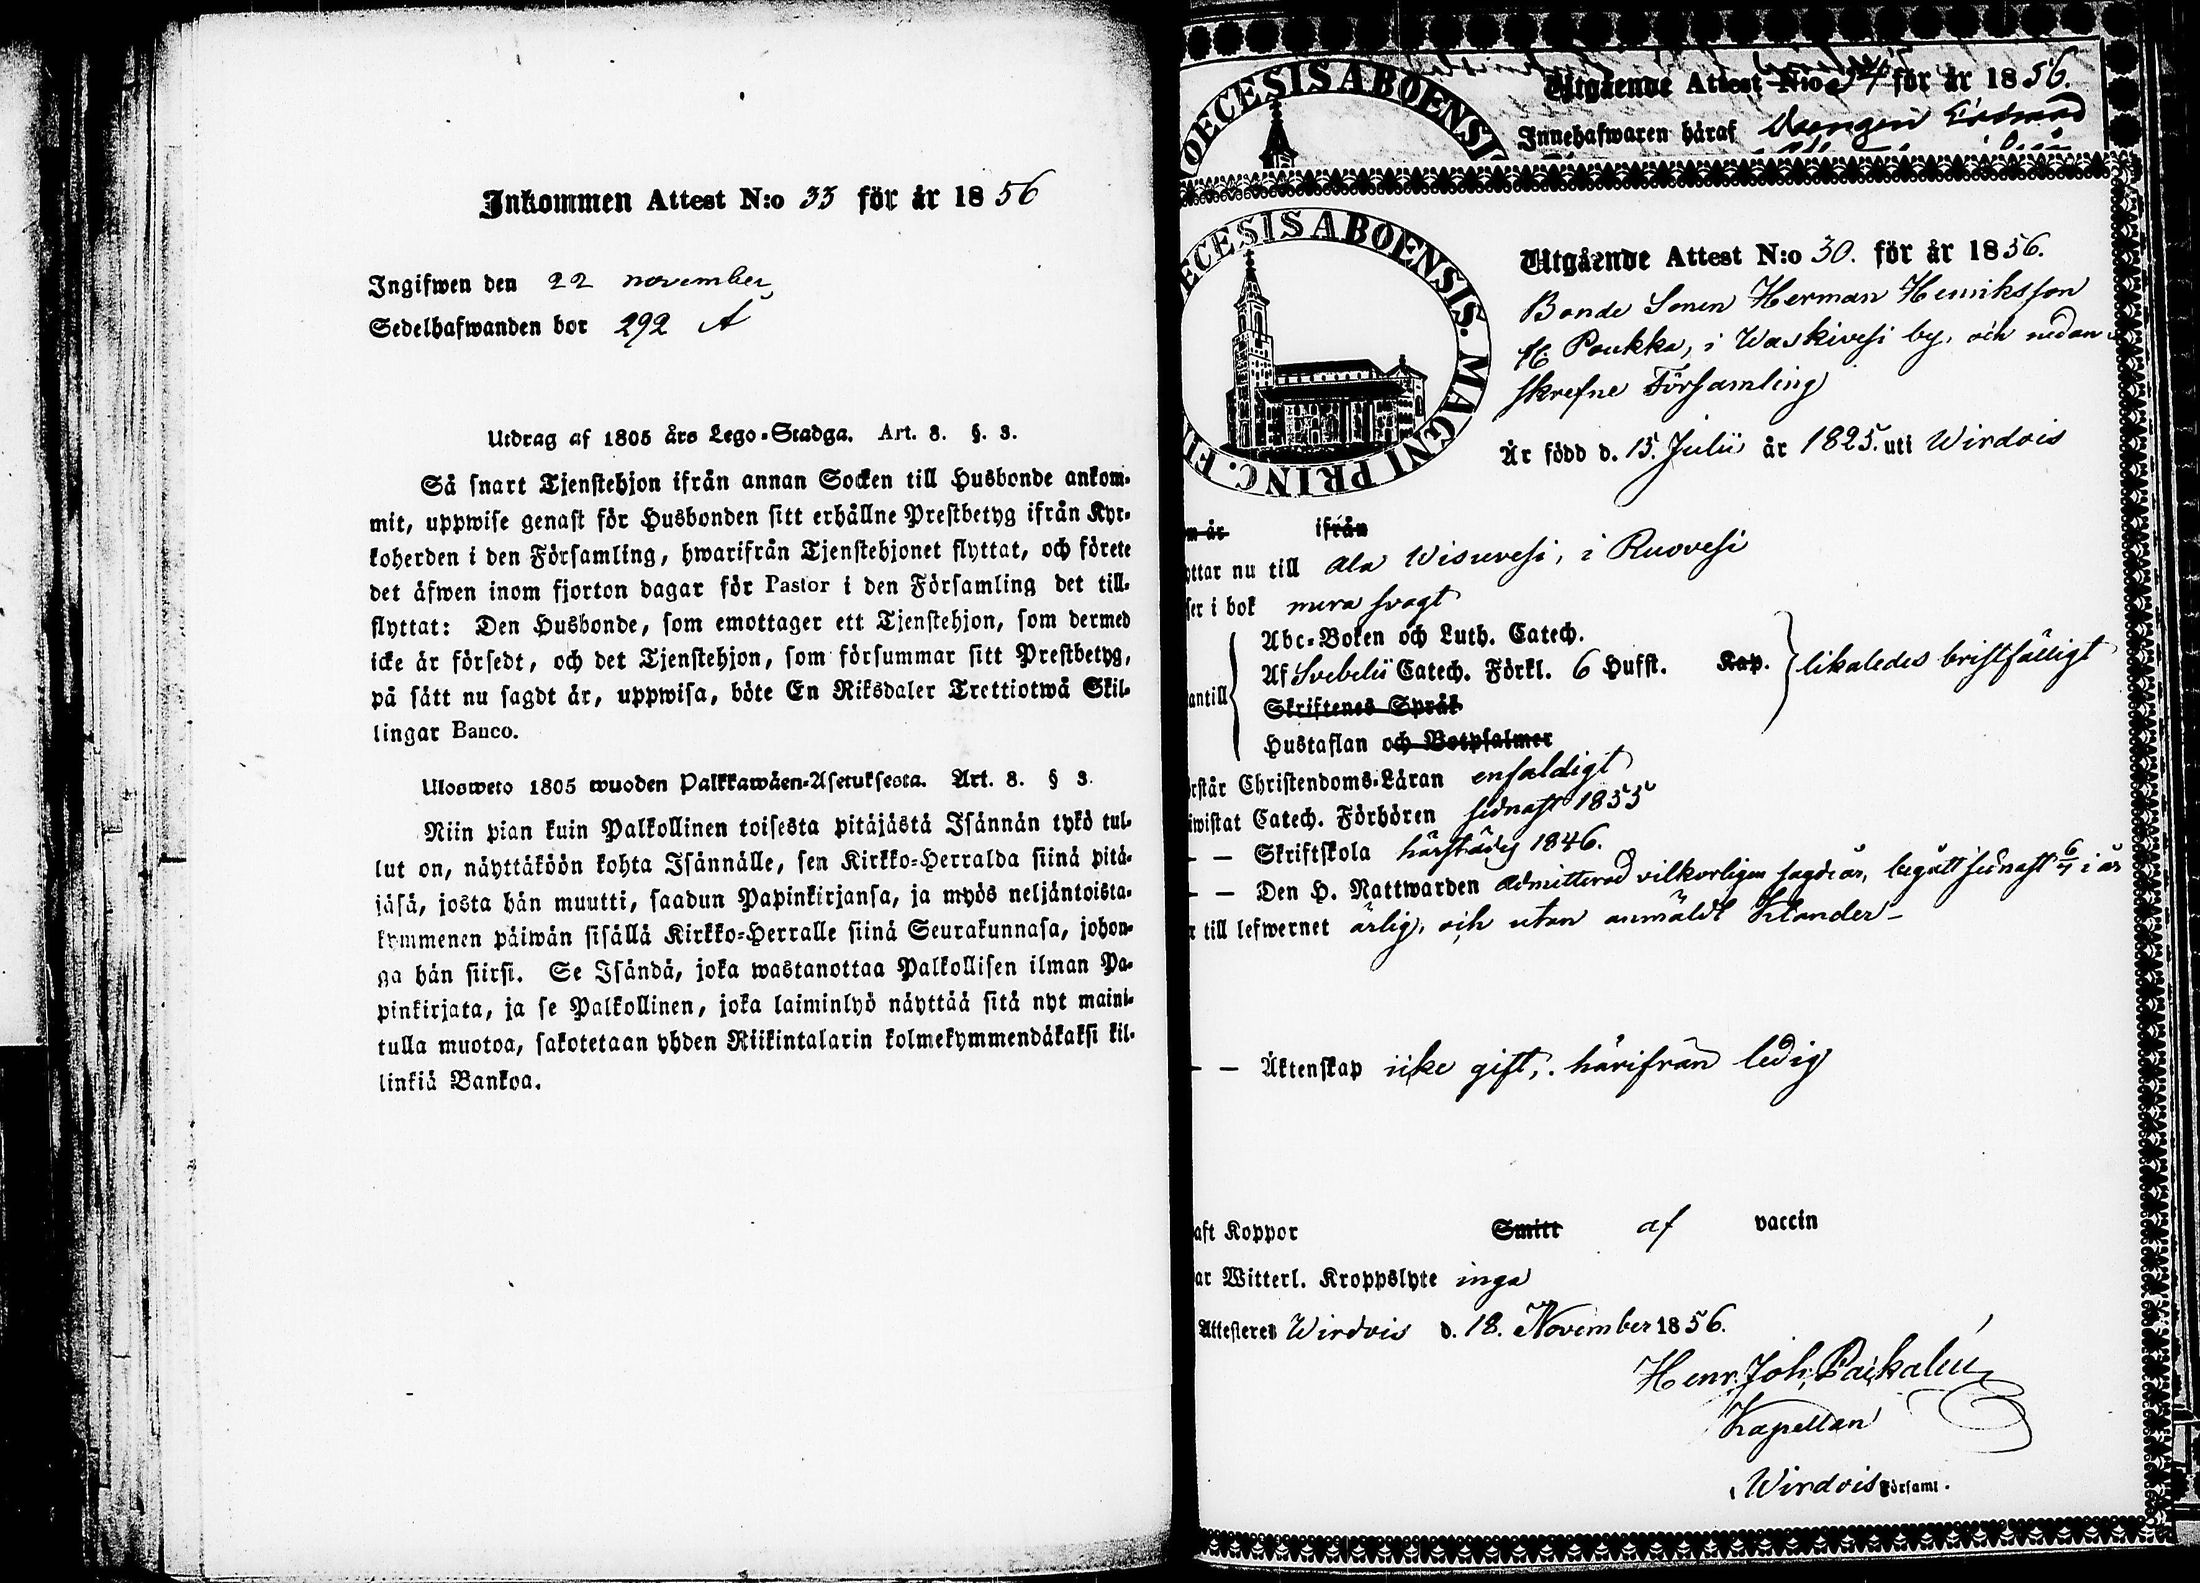 Inkommen Attest N:o 33 för år 1856
Ingifwen den 22 november
Sedelhafwanden bor 292 A
Utdrag af 1805 års Lego-Stadga. Art. 8. §. 3.
Så snart Tjenstehjon ifrån annan Socken till Husbonde ankom-
mit, uppwise genast för Husbonden sitt erhållne Prestbetyg ifrån Kyr-
koherden i den Församling, hwarifrån Tjenstehjonet flyttat, och förete
det äfwen inom fjorton dagar för Pastor i den Församling det till-
flyttat: Den Husbonde, som emottager ett Tjenstehjon, som dermed
icke är försedt, och det Tjenstehjon, som försummar sitt Prestbetyg,
på sätt nu sagdt är, uppwisa, böte En Riksdaler Trettiotwå Skil-
lingar Banco.
Ulosweto 1805 wuoden Palkkawäen-Asetuksesta. Art. 8. § 3.
Niin pian kuin Palkollinen toisesta pitäjästä Isännän tykö tul-
lut on, näyttäköön kohta Isännälle, sen Kirkko-Herralda siinä pitä-
jäsä, josta hän muutti, saadun Papinkirjansa, ja myös neljäntoista-
kymmenen päiwän sisällä Kirkko-Herralle siinä Seurakunnasa, johon-
ga hän siirsi. Se Isändä, joka wastanottaa Palkollisen ilman Pa-
pinkirjata, ja se Palkollinen, joka laiminlyö näyttää sitä nyt maini-
tulla muotoa, sakotetaan yhden Riikintalarin kolmekymmendäkaksi kil-
linkiä Bankoa.
OECESIS ABOENSI
Utgående Attest N:o 34 för år 1856.
Innehafwaren häraf
ECESIS ABOENSIS. MAGNI PRINC. FI
Utgående Attest N:o 30. för år 1856.
Bonde Sonen Herman Henriksson
Poukka, i Waskivesi by, och nedan
skrefne Församling
Är född d. 15. Julii år 1825. uti Wirdois
m år ifrån
yttar nu till Ala Wisuvesi, i Ruovesi
ser i bok mera svagt
antill
Abc-Boken och Luth. Catech.
Af Svebelii Catech. Förkl. 6 Hufst. Kap. likaledes bristfälligt
Skriftenes Språk
Hustaflan och Botpsalmer
rstår Christendoms-Läran enfaldigt
iwistat Catech. Förhören sednast 1855
— — Skriftskola härstädes 1846.
— — Den H. Nattwarden admitterad vilkorligen sagde år, begått sednast 6/7 i år
r till lefwernet ärlig, och utan anmäldt klander —
— — Äktenskap icke gift, härifrån ledig
aft Koppor Smitt af vaccin
ar Witterl. Kroppslyte inga
Attesteres Wirdois d. 18. November 1856.
Henr. Joh. Packalén
Kapellan
i Wirdois Församl.